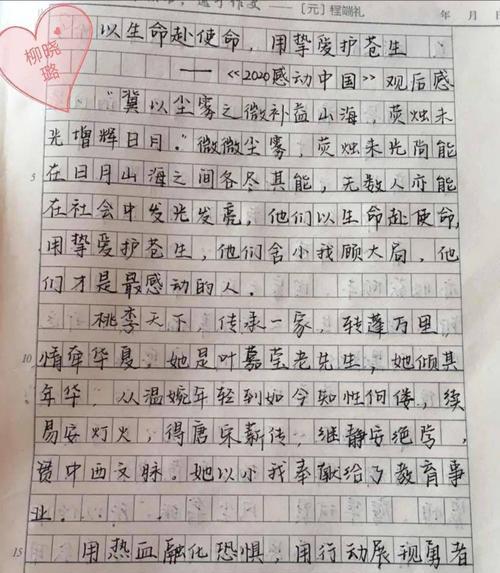 [元]程端礼
年 月
柳晓璐
以生命赴使命，用挚爱护苍生
——《2020感动中国》观后感
"冀以尘雾之微补益山海，荧烛末
光增辉日月."微微尘雾，荧烛末光尚能
5 在日月山海之间各尽其能，无数人亦能
在社会中发光发亮，他们以生命赴使命，
用挚爱护苍生，他们舍小我顾大局，他
们才是最感动的人.
桃李天下，传承一家，转蓬万里，
10 情牵华夏，她是叶嘉莹老先生，她倾其
年华，从温婉年轻到如今知性佝偻，续
易安灯火，得唐宋薪传，继静安绝学，
贯中西文脉。她以小我奉献给了教育事
业.
15 用热血融化恐惧，用行动展现勇者